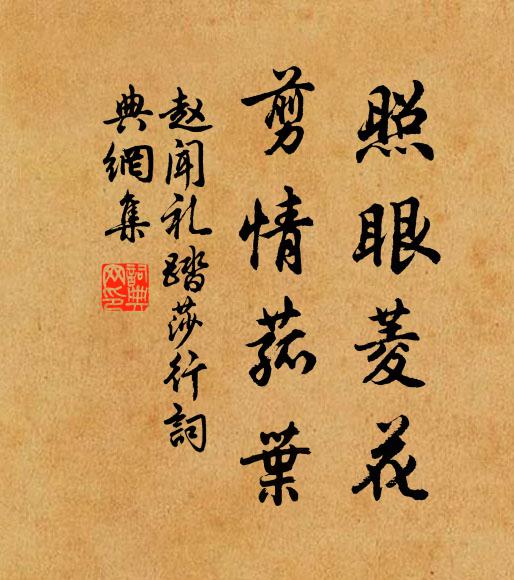 照眼菱花
剪情菰葉
赵闻礼踏莎行詞
典網集
詞典
网印